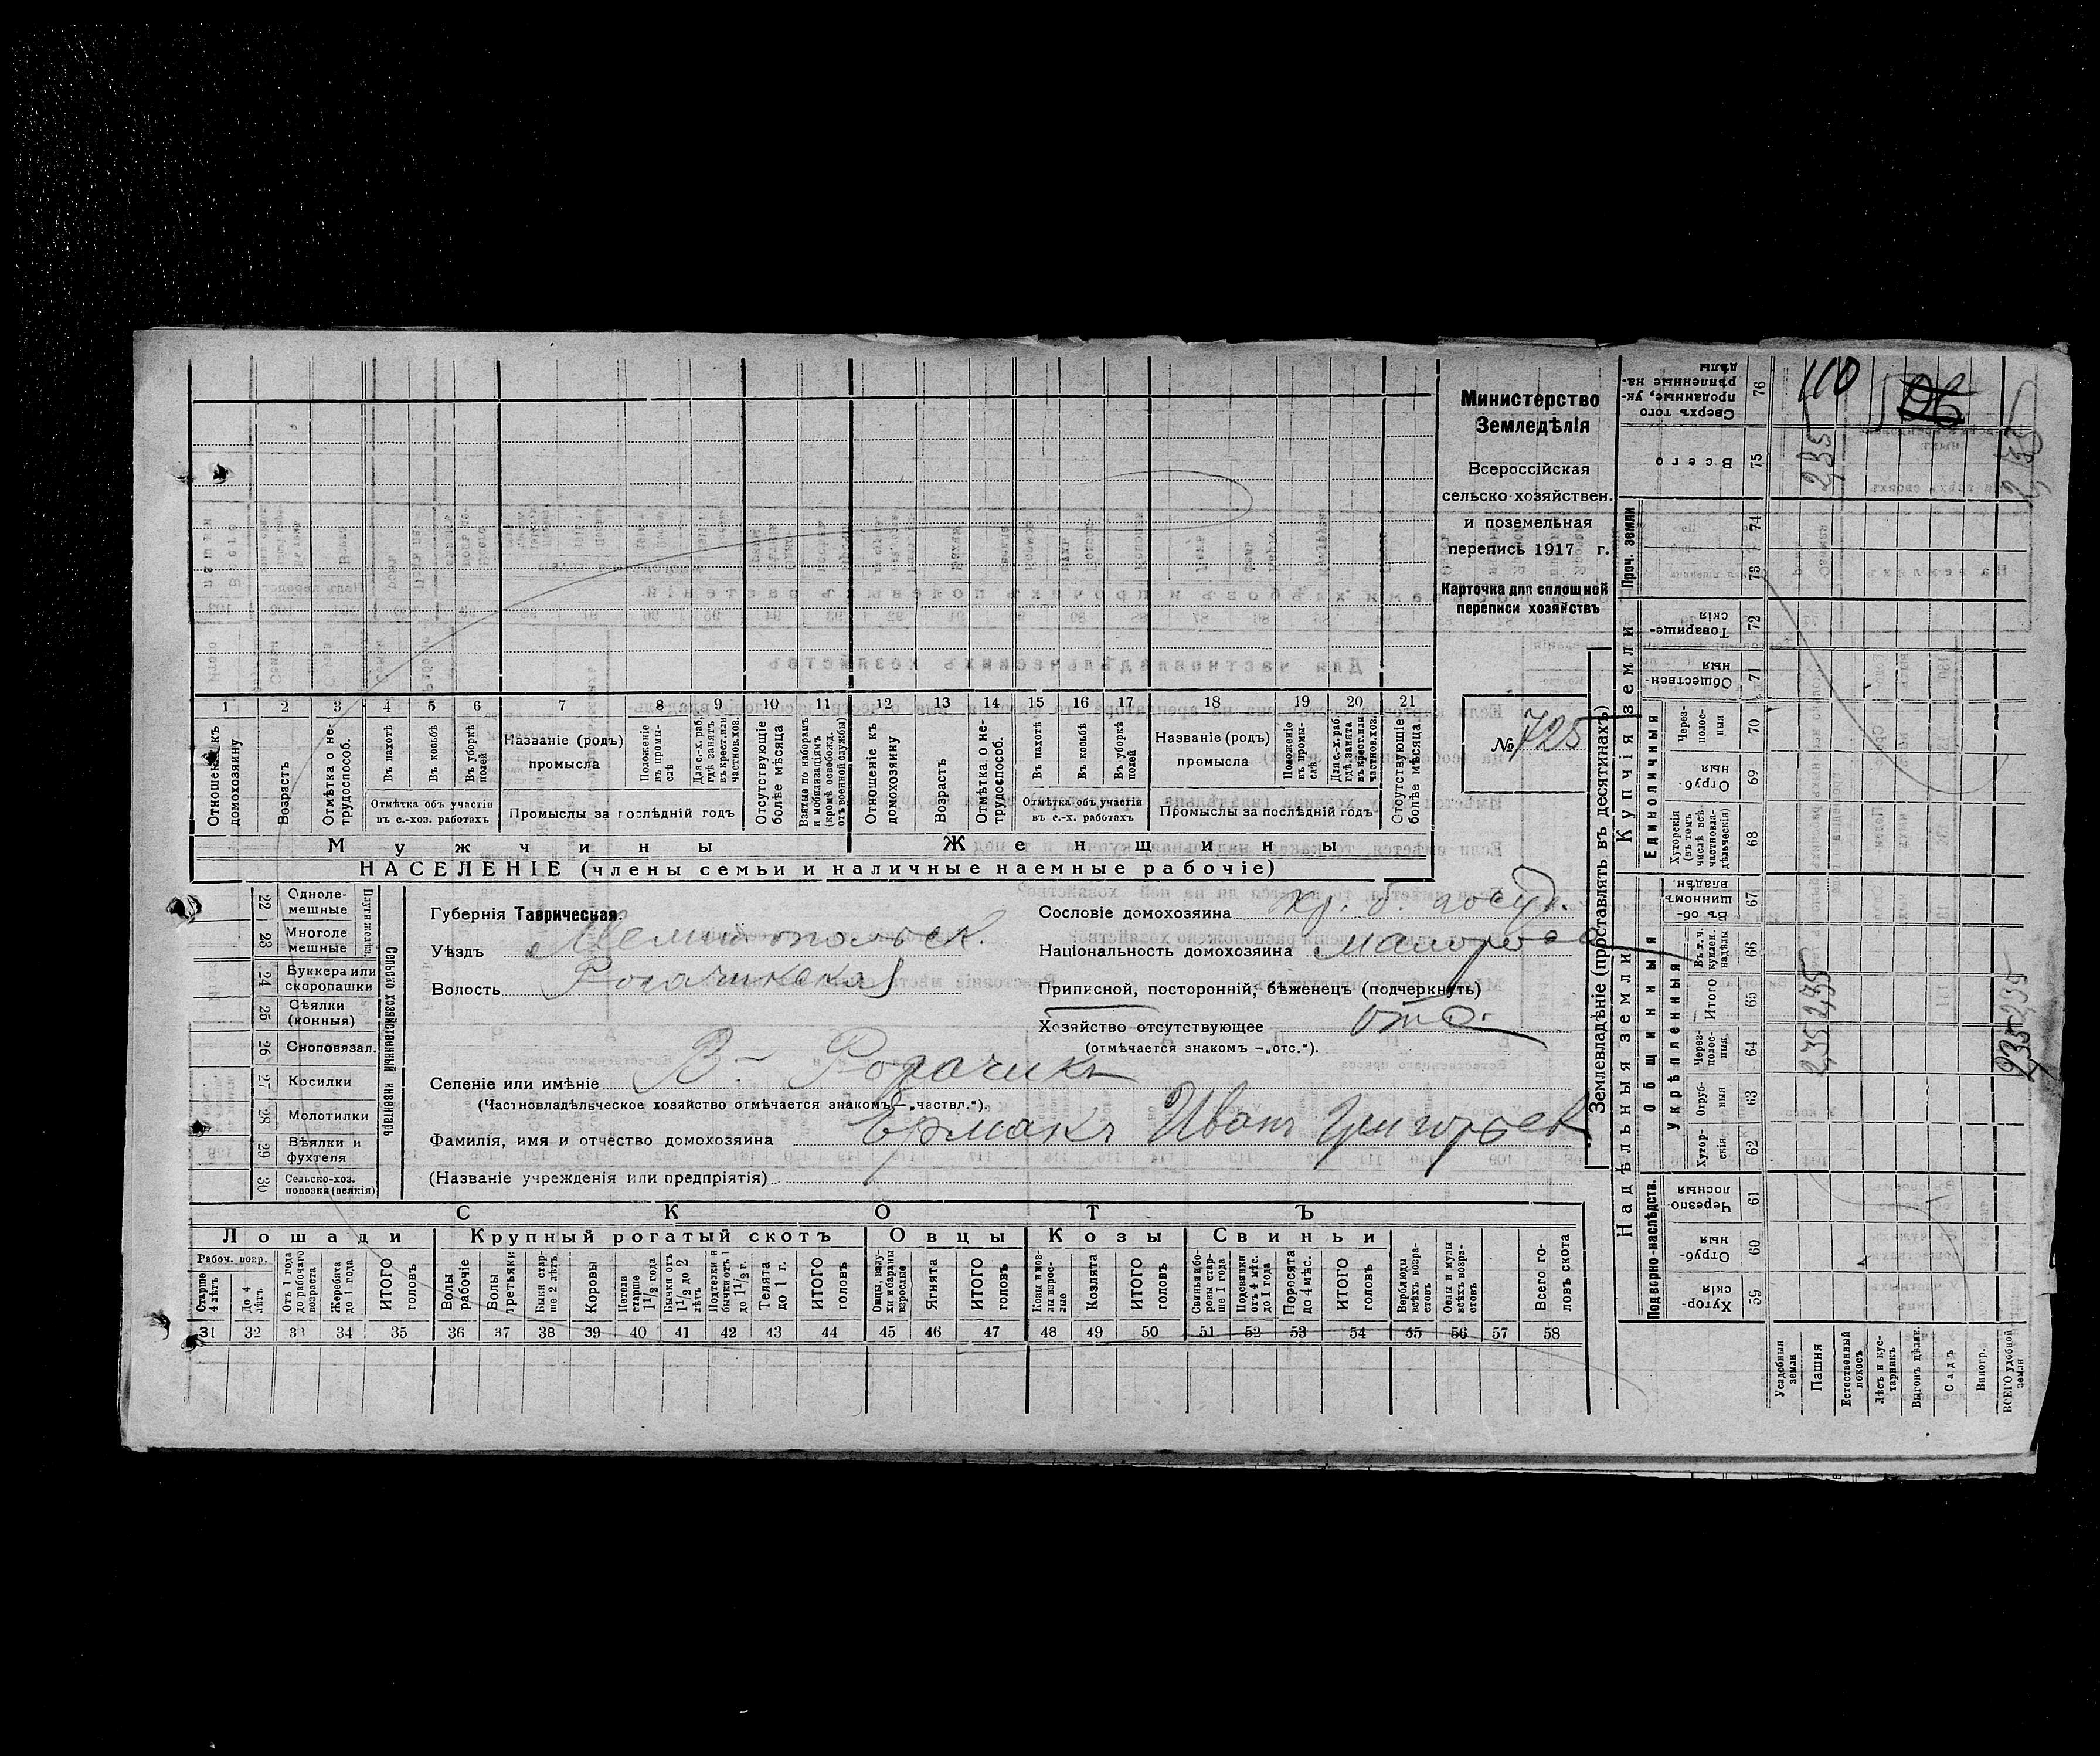 Министерство
Земледѣлія
Всероссійская
сельско-хозяйствен.
и поземельная
перепись 1917 г.
Карточка для сплошной
переписи хозяйствъ
№ 725
1 2 3 4 5 6 7 8 9 10 11 12 13 14 15 16 17 18 19 20 21
Отношеніе къ домохозяину
Возрастъ
Отмѣтка о не-трудоспособ.
Въ пахотѣ
Въ косьбѣ
Въ уборкѣ полей
Отмѣтка объ участіи
въ с.-хоз. работахъ
Названіе (родъ)
промысла
Положеніе въ промы-слѣ
Для с.-х. раб. гдѣ занятъ въ крест. или частнов. хоз.
Промыслы за послѣдній годъ
Отсутствующіе болѣе мѣсяца
Взятые по наборамъ и мобилизаціямъ (кромѣ освобожд. отъ военной службы)
Отношеніе къ домохозяину
Возрастъ
Отмѣтка о не-трудоспособ.
Въ пахотѣ
Въ косьбѣ
Въ уборкѣ полей
Отмѣтка объ участіи
въ с.-х. работахъ
Названіе (родъ)
промысла
Положеніе въ промы-слѣ
Для с.-х. раб. гдѣ занята въ крест. или частнов. хоз.
Промыслы за послѣдній годъ
Отсутствующіе болѣе мѣсяца
Мужчины Женщины
НАСЕЛЕНІЕ (члены семьи и наличные наемные рабочіе)
22 Одноле-мешные
23 Многоле мешные
24 Буккера или скоропашки
25 Сѣялки (конныя)
26 Сноповязал.
27 Косилки
28 Молотилки
29 Вѣялки и фухтеля
30 Сельско-хоз. повозки (всякія)
Сельско хозяйственный инвентарь
Губернія Таврическая
Уѣздъ Мелитопольск.
Волость Рогачикская
Сословіе домохозяина кр. б. госуд.
Національность домохозяина малоросс
Приписной, посторонній, бѣженецъ (подчеркнуть)
Хозяйство отсутствующее отс.
(отмѣчается знакомъ —„отс.“).
Селеніе или имѣніе В- Рогачикъ
(Частновладѣльческое хозяйство отмѣчается знакомъ —„частвл.“).
Фамилія, имя и отчество домохозяина Ермакъ Иванъ Григорьев
(Названіе учрежденія или предпріятія)
СКОТЪ
Лошади Крупный рогатый скотъ Овцы Козы Свиньи
Рабоч. возр.
Старше 4 лѣтъ
До 4 лѣтъ
Отъ 1 года до рабочаго возраста
Жеребята до 1 года
ИТОГО головъ
Волы рабочіе
Волы третьяки
Быки стар-ше 2 лѣтъ
Коровы
Нетели старше 1 1/2 года
Бычки отъ 1 1/2 до 2 лѣтъ
Подтелки и бычки отъ 1 до 1 1/2 г.
Телята до 1 г.
ИТОГО головъ
Овцы, валу-хи и бараны взрослые
Ягнята
ИТОГО головъ
Козы и коз-лы взрос-лые
Козлята
ИТОГО головъ
Свиньи и бо-ровы стар-ше 1 года
Подсвинки отъ 4 мѣс. до 1 года
Поросята до 4 мѣс.
ИТОГО головъ
Верблюды всѣхъ возра-стовъ
Ослы и мулы всѣхъ возра-стовъ
Всего го-ловъ скота
31 32 33 34 35 36 37 38 39 40 41 42 43 44 45 46 47 48 49 50 51 52 53 54 55 56 57 58
Землевладѣніе (проставлять въ десятинахъ)
Надѣльныя земли
Купчія земли
Проч. земли
Подворно-наслѣдств.
Общинныя
Укрѣпленныя
Единоличныя
Хутор-скія 59
Отруб-ныя 60
Черезпо-лосныя 61
Хутор-скія 62
Отруб-ныя 63
Через-полос-ныя 64
Итого 65
Въ т. ч. куплен. надѣлы 66
Въ об-щинномъ владѣн. 67
Хуторскія (въ томъ числѣ всѣ частновла-дѣльческія) 68
Отруб-ныя 69
Через-полос-ныя 70
Обществен-ныя 71
Товарище-скія 72
73
74
Всего 75
Сверхъ того проданные, ук-рѣпленные на-дѣлы 76
Усадебныя земли
Пашня 2,35 2,35 2,35
Естественный покосъ
Лѣсъ и кус-тарникъ
Выгонъ цѣлин.
Садъ
Виногр.
ВСЕГО удобной земли 2,35 2,35 2,35
110